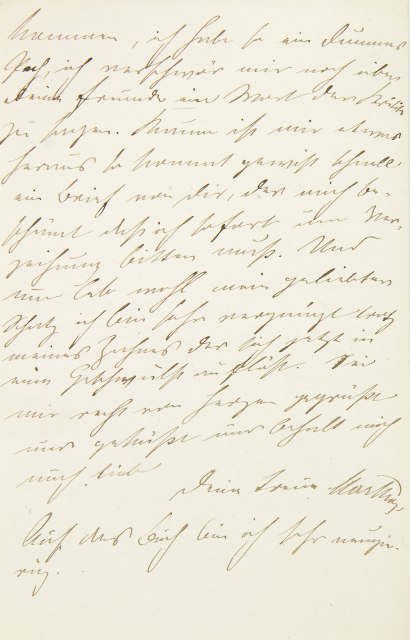 kommen, ich habe so ein dummes
Pech, ich verschwör mir noch über
Deine Freunde ein Wort der Kritik
zu sagen. Kaum ist mir etwas
heraus so kommt gewiß schnell
ein Brief von dir, der mich be-
schämt daß ich sofort um Ver-
zeihung bitten muß. Und
nun leb wohl mein geliebter
Schatz ich bin sehr vergnügt trotz
meines Zahnes der sich jetzt in
eine Geschwulst auflöst. Sei
mir recht von Herzen gegrüßt
und geküßt und behalt mich
auch lieb
Deine treue
Auf das Buch bin ich sehr neugie-
rig.